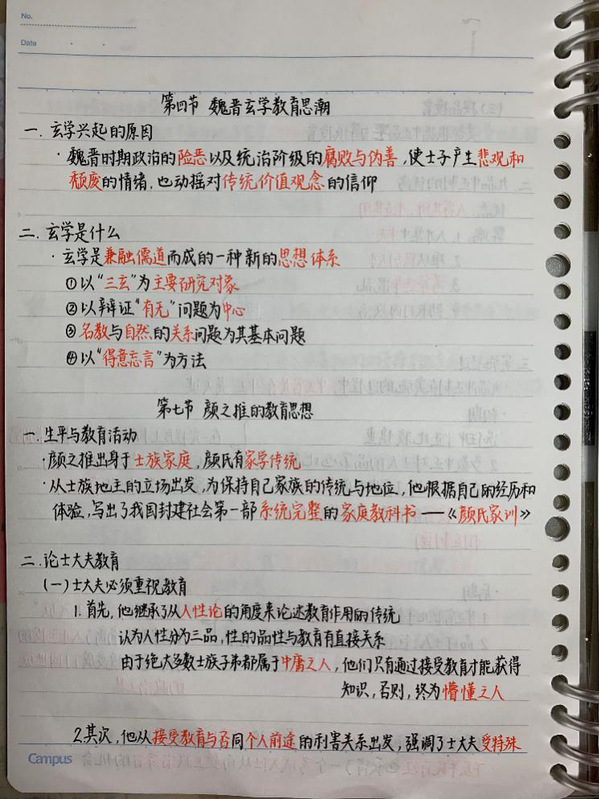 No.
Date
第四节 魏晋玄学教育思潮
一.玄学兴起的原因
·魏晋时期政治的险恶以及统治阶级的腐败与伪善,使士子产生悲观和
颓废的情绪,也动摇对传统价值观念的信仰
二.玄学是什么
·玄学是兼融儒道而成的一种新的思想体系
①以"三玄"为主要研究对象
②以辩证"有无"问题为中心
③名教与自然的关系问题为其基本问题
④以"得意忘言"为方法
第七节 颜之推的教育思想
一.生平与教育活动
·颜之推出身于士族家庭,颜氏有家学传统
·从士族地主的立场出发,为保持自己家族的传统与地位,他根据自己的经历和
体验,写出了我国封建社会第一部系统完整的家庭教科书——《颜氏家训》
二.论士大夫教育
(一)士大夫必须重视教育
1.首先,他继承了从人性论的角度来论述教育作用的传统
认为人性分为三品,性的品性与教育有直接关系
由于绝大多数士族子弟都属于中庸之人,他们只有通过接受教育才能获得
知识,否则,终为懵懂之人
2.其次,他从接受教育与否同个人前途的利害关系出发,强调了士大夫受特殊
Campus